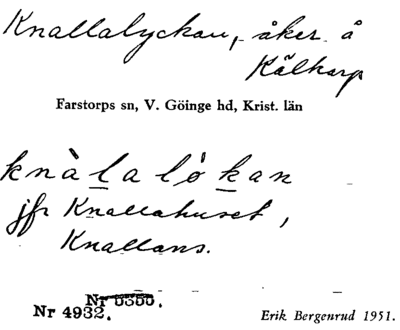 Knallalyckan, åker å
Kälkarp
Farstorps sn, V. Göinge hd, Krist. län
knàlalø̀kan
jfr Knallahuset,
Knallans.
Nr 4932.
Erik Bergenrud 1951.